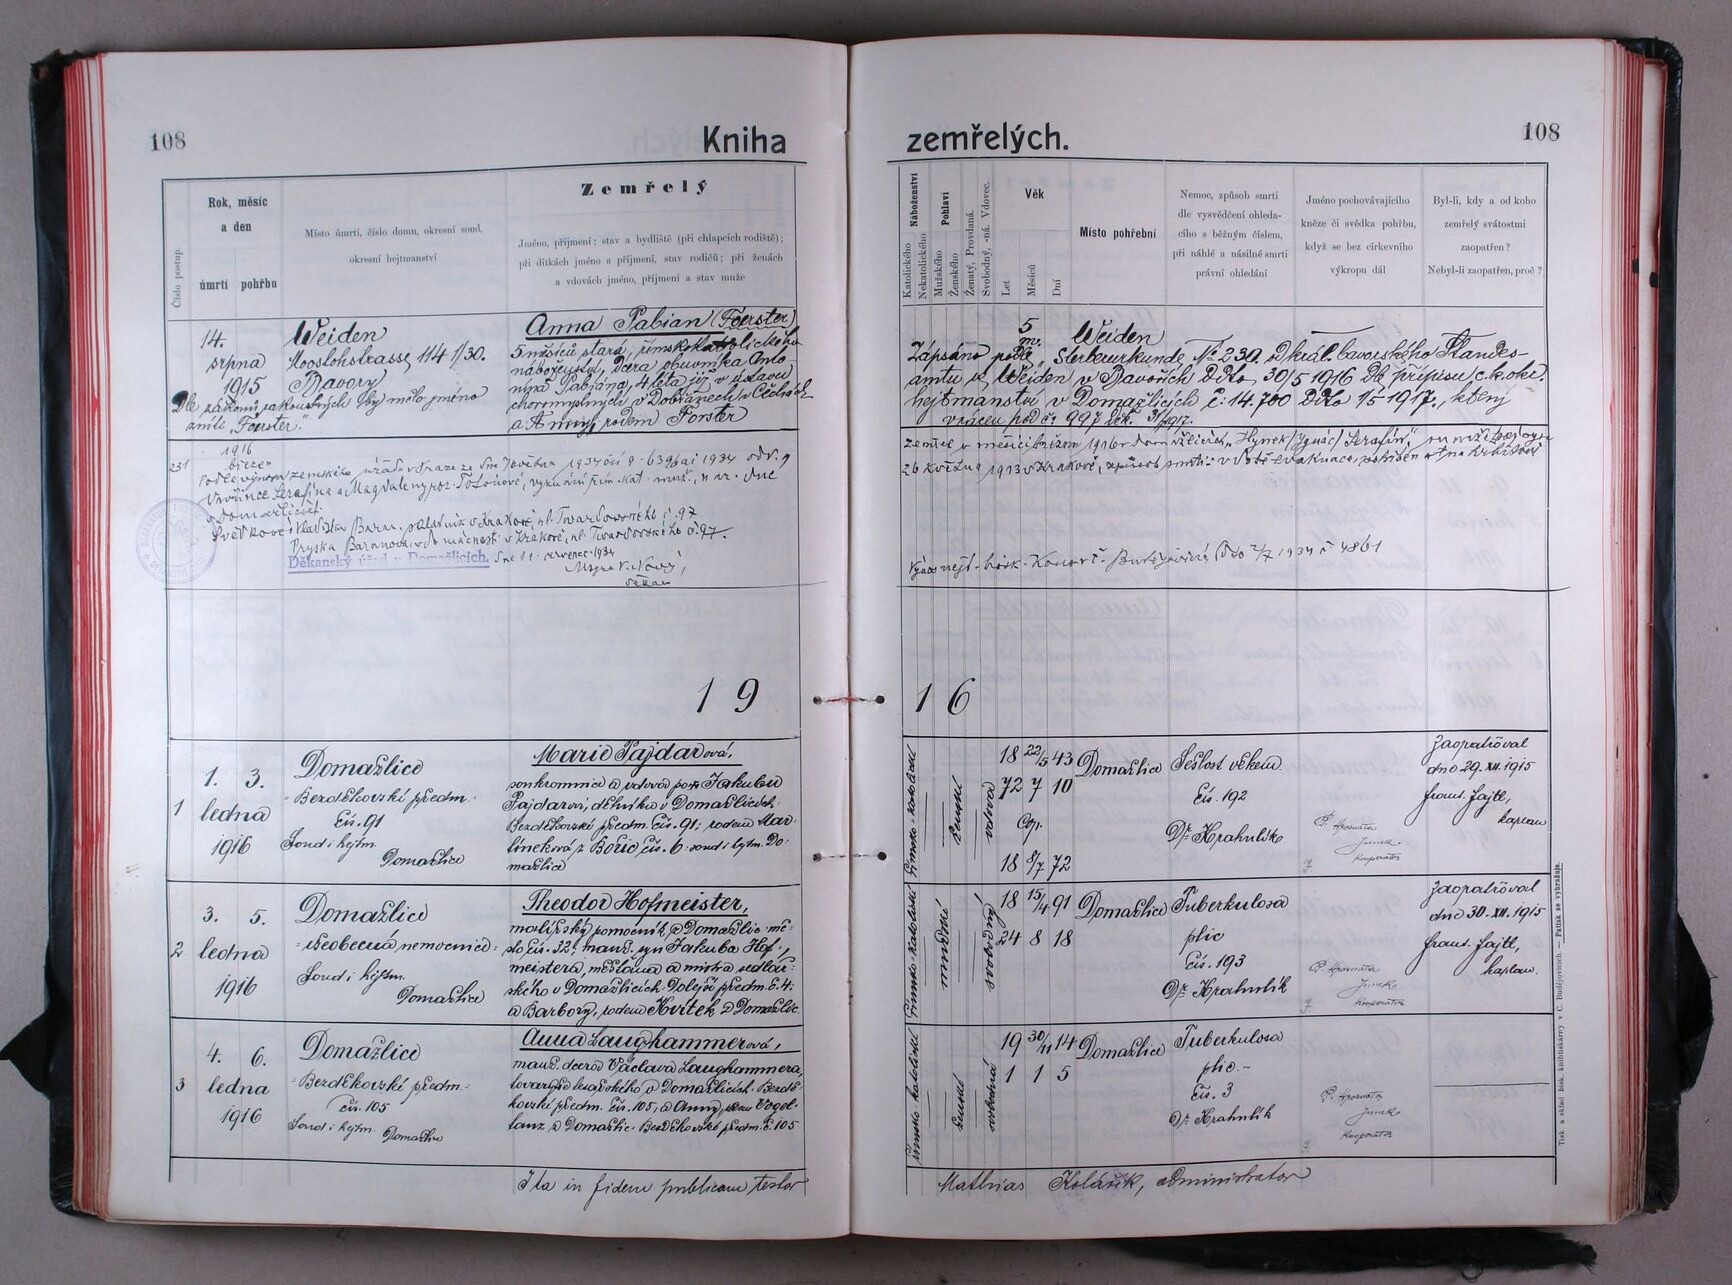 108
Kniha
zemřelých.
108
Číslo postup.
Rok, měsíc
a den
úmrtí pohřbu
Místo úmrtí, číslo domu, okresní soud,
okresní hejtmanství
Zemřelý
Jméno, příjmení; stav a bydliště (při chlapcích rodiště);
při dítkách jméno a příjmení, stav rodičů; při ženách
a vdovách jméno, příjmení a stav muže
Náboženství
Katolického
Nekatolického
Pohlaví
Mužského
Ženského
Ženatý, Provdaná.
Svobodný, -ná. Vdovec.
Věk
Let
Měsíců
Dní
Místo pohřební
Nemoc, způsob smrti
dle vysvědčení ohleda-
cího s běžným číslem,
při náhlé a násilné smrti
právní ohledání
Jméno pochovávajícího
kněze či svědka pohřbu,
když se bez církevního
výkropu dál
Byl-li, kdy a od koho
zemřelý svátostmi
zaopatřen?
Nebyl-li zaopatřen, proč?
14.
srpna
1915
Weiden
Mooslohstrasse 114 1/30.
Bavory
Dle zákonů rakouských by mělo jméno
zníti "Foerster."
Anna Pabian (Foerster)
5 měsíců stará, římskokatolického
náboženství, dcera obuvníka Anto-
nína Pabjána, 4 léta již v ústavu
choromyslných v Dobřanech v Čechách
a Anny, rodem Forster
5
m.
Weiden
Zapsáno podle "Sterbeurkunde № 230. od král. bavorského Standes-
amtu v Weiden v Bavořích ddto 30/5 1916 dle přípisu c. k. okr.
hejtmanství v Domažlicích č: 14.700 ddto 1/5 1917., který
vrácen pod č: 997 děk. 31/5 1917.
231
1916
březen
Podle výnosu zemského úřadu v Praze ze dne
Vavřince Serafína a Magdaleny
v Domažlicích.
Svědkové: Vladislav Baran, v Krakově, ul. Twardowského č. 97
Baranová, v domácnosti v Krakově, ul. Twardowského č. 97.
Děkanský úřad v Domažlicích. dne 11. červenec 1934
děkan
zemřel v měsíci březnu 1916
26 května 1913 v Krakově,
1934 č 4861
19
16
1
1. 3.
ledna
1916
Domažlice
Bezděkovské předm.
čís. 91
Soud i hejtm.
Domažlice
Marie Pajdarová,
soukromnice a vdova po † Jakubu
Pajdarovi, dělníku v Domažlicích
Bezděkovské předm. čís. 91; rodem Mar-
tínková z Bořic čís. 6 soud i hejtm. Do-
mažlice
římsko-katolické
ženské
vdova
18 22/5 43
72 7 10
Cop.
18 8/7 72
Domažlice
Sešlost věkem.
čís. 192
Dr. Krahulík
Junek
kooperátor
Zaopatřoval
dne 29. XII. 1915
frant. Fajtl,
kaplan
2
3. 5.
ledna
1916
Domažlice
všeobecná nemocnice
Soud i hejtm.
Domažlice
Theodor Hofmeister,
malířský pomocník z Domažlic mě-
sto čís. 32, manž. syn Jakuba Hof-
meistera, měšťana a mistra sedlář-
ského v Domažlicích Dolejší předm. č. 4:
a Barbory, rodem Kvítek z Domažlic
římsko-katolické
mužské
svobodný
18 15/4 91
24 8 18
Domažlice
Tuberkulosa
plic
čís. 193
Dr. Krahulík
Junek
kooperátor
Zaopatřoval
dne 30. XII. 1915
frant. Fajtl,
kaplan.
3
4. 6.
ledna
1916
Domažlice
Bezděkovské předm.
čís. 105
Soud i hejtm. Domažlice
Anna Laughammerová,
manž. dcera Václava Laughammera,
v Domažlicích Bezdě-
kovské předm. čís. 105, a Anny, rozené Vogel-
tanz z Domažlic Bezděkovské předm. č. 105
římsko-katolické
ženské
svobodná
19 30/11 14
1 1 5
Domažlice
Tuberkulosa
plic.
čís. 3
Dr. Krahulík
Junek
kooperátor
Ita in fidem publicam testor
Mathias Kolářík, administrator
Tisk a sklad bisk. knihtiskárny v Č. Budějovicích. — Patisk se vyhražuje.